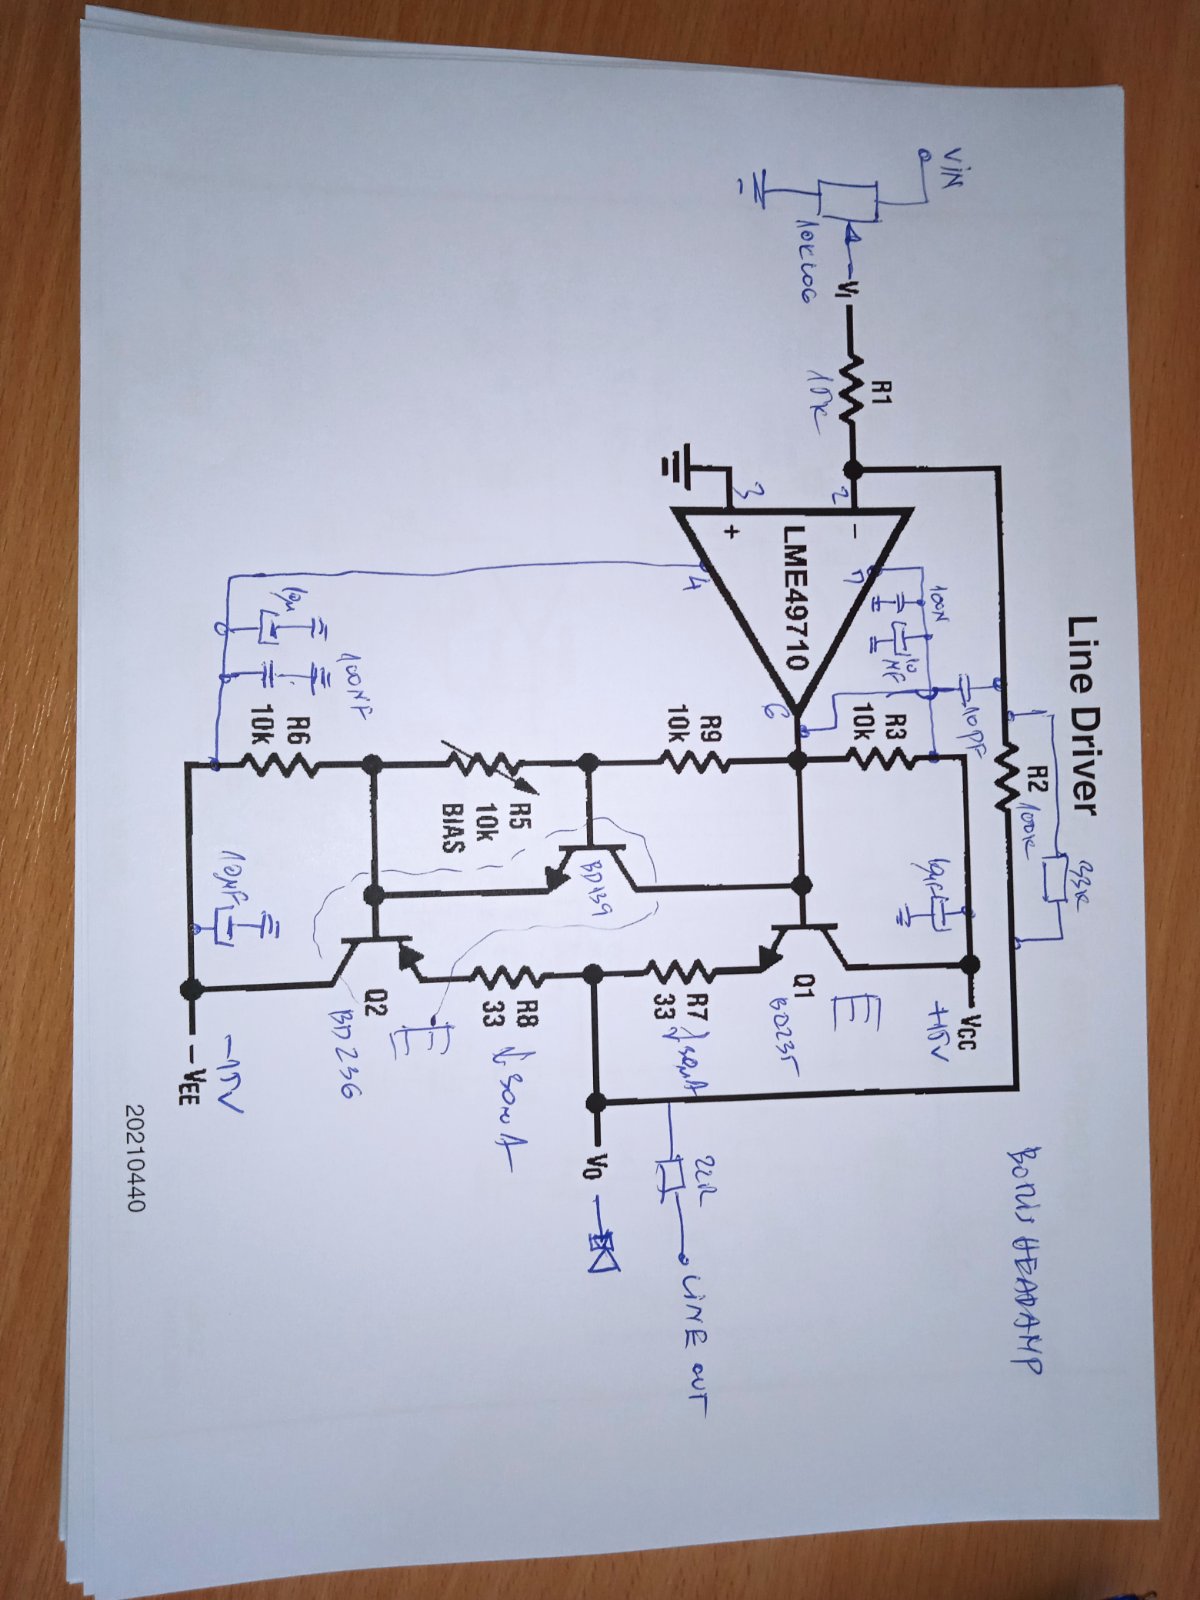 Line Driver
BORIS HEADAMP
VIN
10K LOG
VI
R1
10K
2
3
LME49710
−
+
7
4
6
100N
10
MF
100PF
R2
100K
33K
R3
10k
R9
10k
R5
10k
BIAS
R6
10k
10µ
100NF
10µF
10µF
BD139
Q1
BD235
E
VCC
+15V
R7
33
30mA
R8
33
30mA
Q2
BD236
E
−VEE
−15V
VO
22R
LINE OUT
20210440